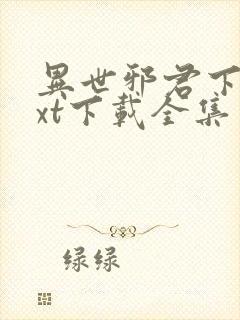 異世邪君下
xt下載全集
绿绿